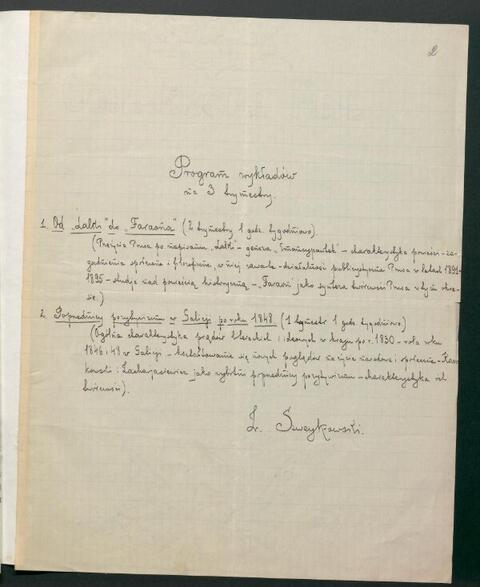 2
Program wykładów
na 3 trymestry.
1. Od „Lalki” do „Faraona” (2 trymestry 1 godz. tygodniowo).
(Przejścia Prusa po napisaniu „Lalki” – geneza „Emancypantek” – charakterystyka powieści – za-
gadnienia społeczne i filozoficzne, w niej zawarte – działalność publicystyczna Prusa w latach 1891-
1895 – studja nad powieścią historyczną – „Faraon” jako synteza twórczości Prusa w tym okre-
sie.)
2. Poprzednicy pozytywizmu w Galicji po roku 1848 (1 trymestr 1 godz. tygodniowo)
(Ogólna charakterystyka prądów literackich i ideowych w kraju po r. 1830 – rola roku
1846 i 48 w Galicji – kształtowanie się nowych poglądów na życie narodowe i społeczne –
i Zacharjasiewicz jako wybitni poprzednicy pozytywizmu – charakterystyka ich
twórczości).
Z. Szweykowski.